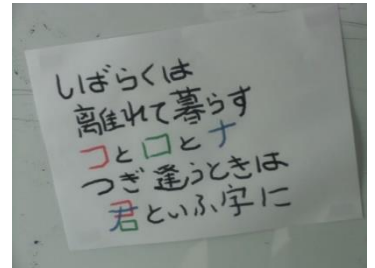 しばらくは
離れて暮らす
コとロとナ
つぎ逢うときは
君といふ字に